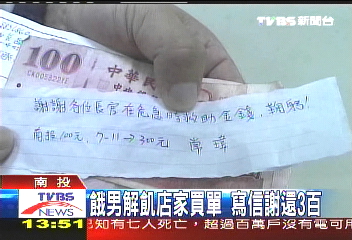 TVBS 新聞台
100
中華民
中華
謝謝各位長官在危急時救助金錢,鞠躬!
南投100元, 7-11→300元
南投
TVBS NEWS
餓男解飢店家買單 寫信謝還3百
13:51
已知有七人死亡,超過百萬戶沒有電可用